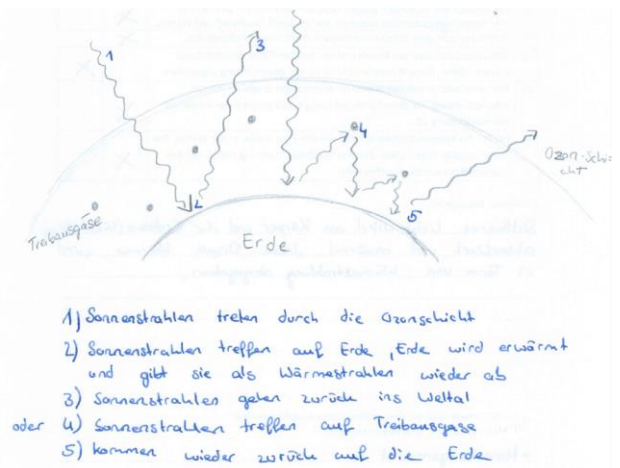 1
3
4
Ozon-Schi-
cht
2
5
Treibausgase
Erde
1) Sonnenstrahlen treten durch die Ozonschicht
2) Sonnenstrahlen treffen auf Erde, Erde wird erwärmt
und gibt sie als Wärmestrahlen wieder ab
3) Sonnenstrahlen gehen zurück ins Weltal
oder 4) Sonnenstrahlen treffen auf Treibausgase
5) kommen wieder zurück auf die Erde